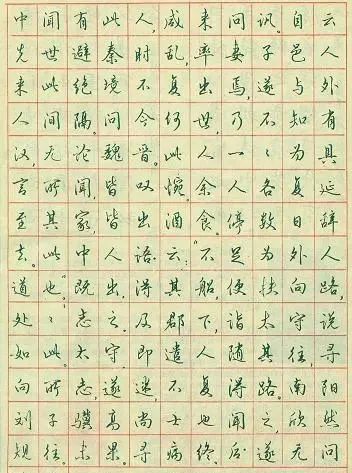 中闻有此人,咸来问讯。自云
先世避秦时乱,率妻子邑人
来此绝境不复出焉,遂与外
人间隔。问今何世,乃不知有
汉,无论魏晋。此人一々为具
言所闻,皆叹惋。余人各复延
至其家,皆出酒食。停数日辞
去。此中人语云:“不足为外人
道也”。既出,得其船,便扶向路,
处々志之。及郡下,诣太守说
如此。太守即遣人随其往,寻
向所志,遂迷,不复得路。南阳
刘子骥高尚士也闻之,欣然
规往。未果寻病终。后遂无问